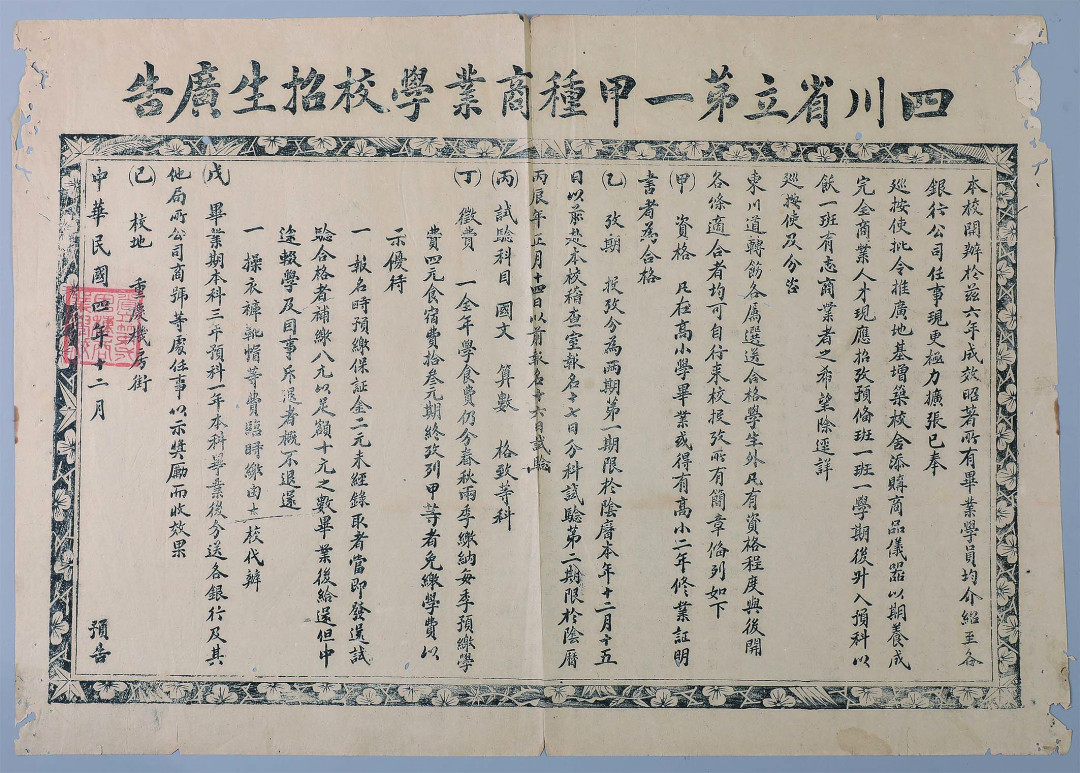 四川省立第一甲種商業學校招生廣告
本校開辦於茲六年成效昭著所有畢業學員均介紹至各
銀行公司任事現更極力擴張已奉
巡按使批令推廣地基增築校舍添購商品儀器以期養成
完全商業人才現應招攷預俻班一班一學期後升入預科以
飫一班有志商業者之希望除逕詳
巡按使及分咨
東川道轉飭各屬選送合格學生外凡有資格程度與後開
各條適合者均可自行來校投攷所有簡章俻列如下
(甲) 資格 凡在高小學畢業或得有高小二年修業証明
書者為合格
(乙) 攷期 投攷分為兩期第一期限於陰曆本年十二月十五
日以前赴本校稽查室報名十七日分科試驗第二期限於陰曆
丙辰年正月十四日以前報名十六日試驗
(丙) 試驗科目 國文 算數 格致等科
(丁) 徵費 一全年學食費仍分春秋兩季繳納每季預繳學
費四元食宿費拾叁元期終攷列甲等者免繳學費以
示優待
一 報名時預繳保証金二元未經錄取者當即發還試
驗合格者補繳八元以足額十元之數畢業後給還但中
途輟學及因事斥退者概不退還
一 操衣褲靴帽等費臨時繳由本校代辦
(戊) 畢業期本科三年預科一年本科畢業後分送各銀行及其
他局所公司商號等處任事以示獎勵而收效果
(己) 校地 重慶機房街
中華民國四年十二月 預告